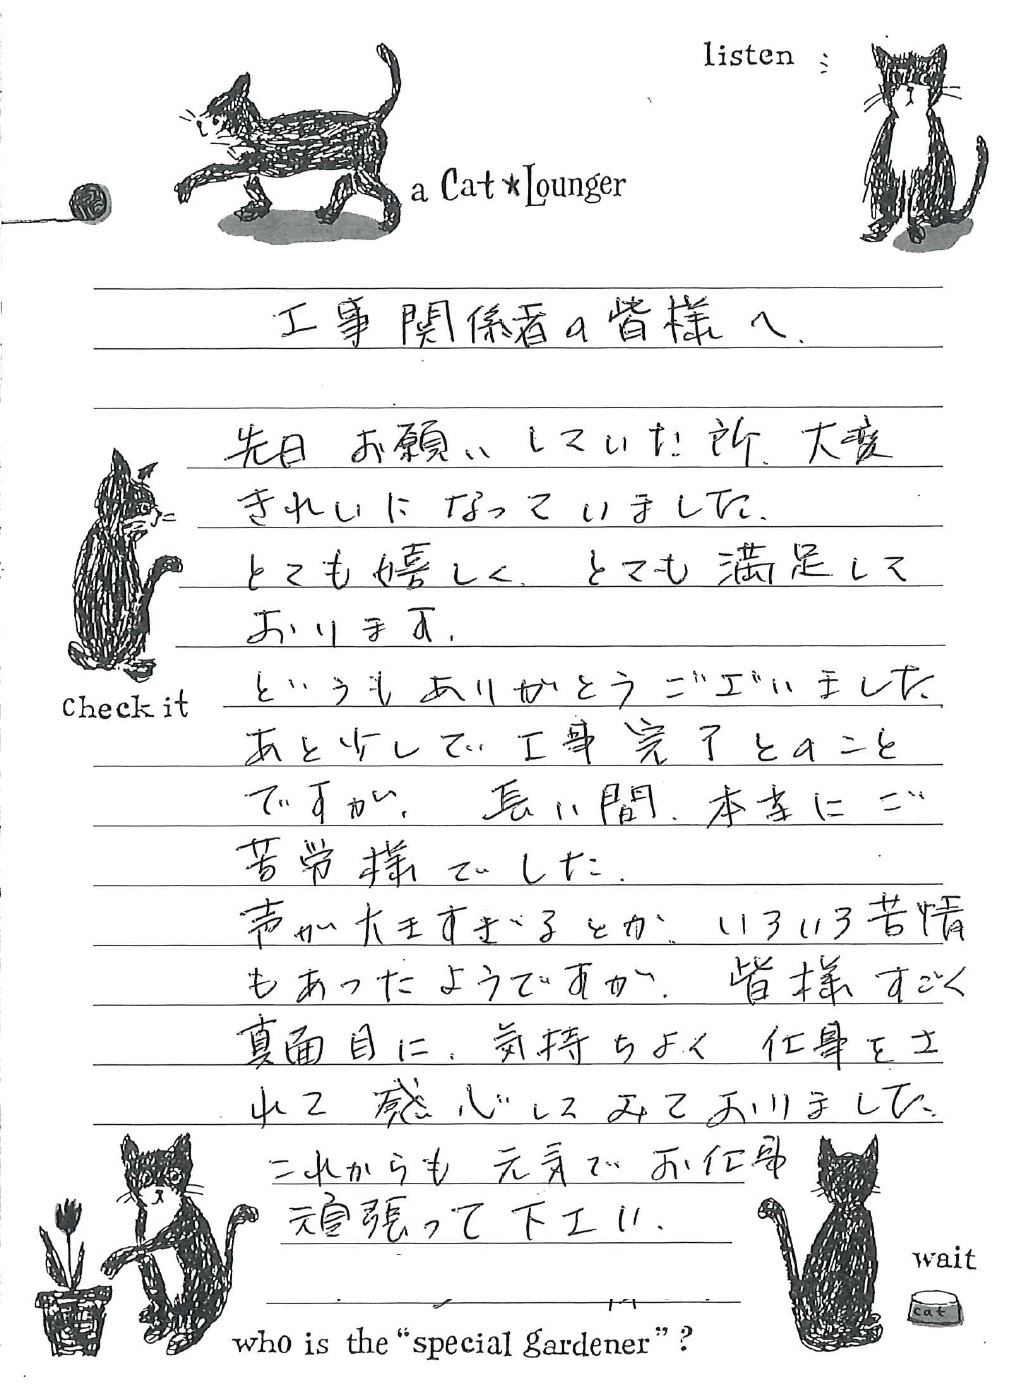 listen
a Cat★Lounger
工事関係者の皆様へ.
先日 お願いしていた所、大変
きれいになっていました.
とても嬉しく、とても満足して
おります.
どうもありがとうございました
あと少しで 工事完了とのこと
ですが、長い間、本当にご
苦労様でした.
声が大きすぎるとか、いろいろ苦情
もあったようですが、皆様すごく
真面目に、気持ちよく 仕事をさ
れて 感心してみておりました.
check it
これからも 元気で お仕事
頑張って下エい.
wait
cat
who is the “special gardener”?